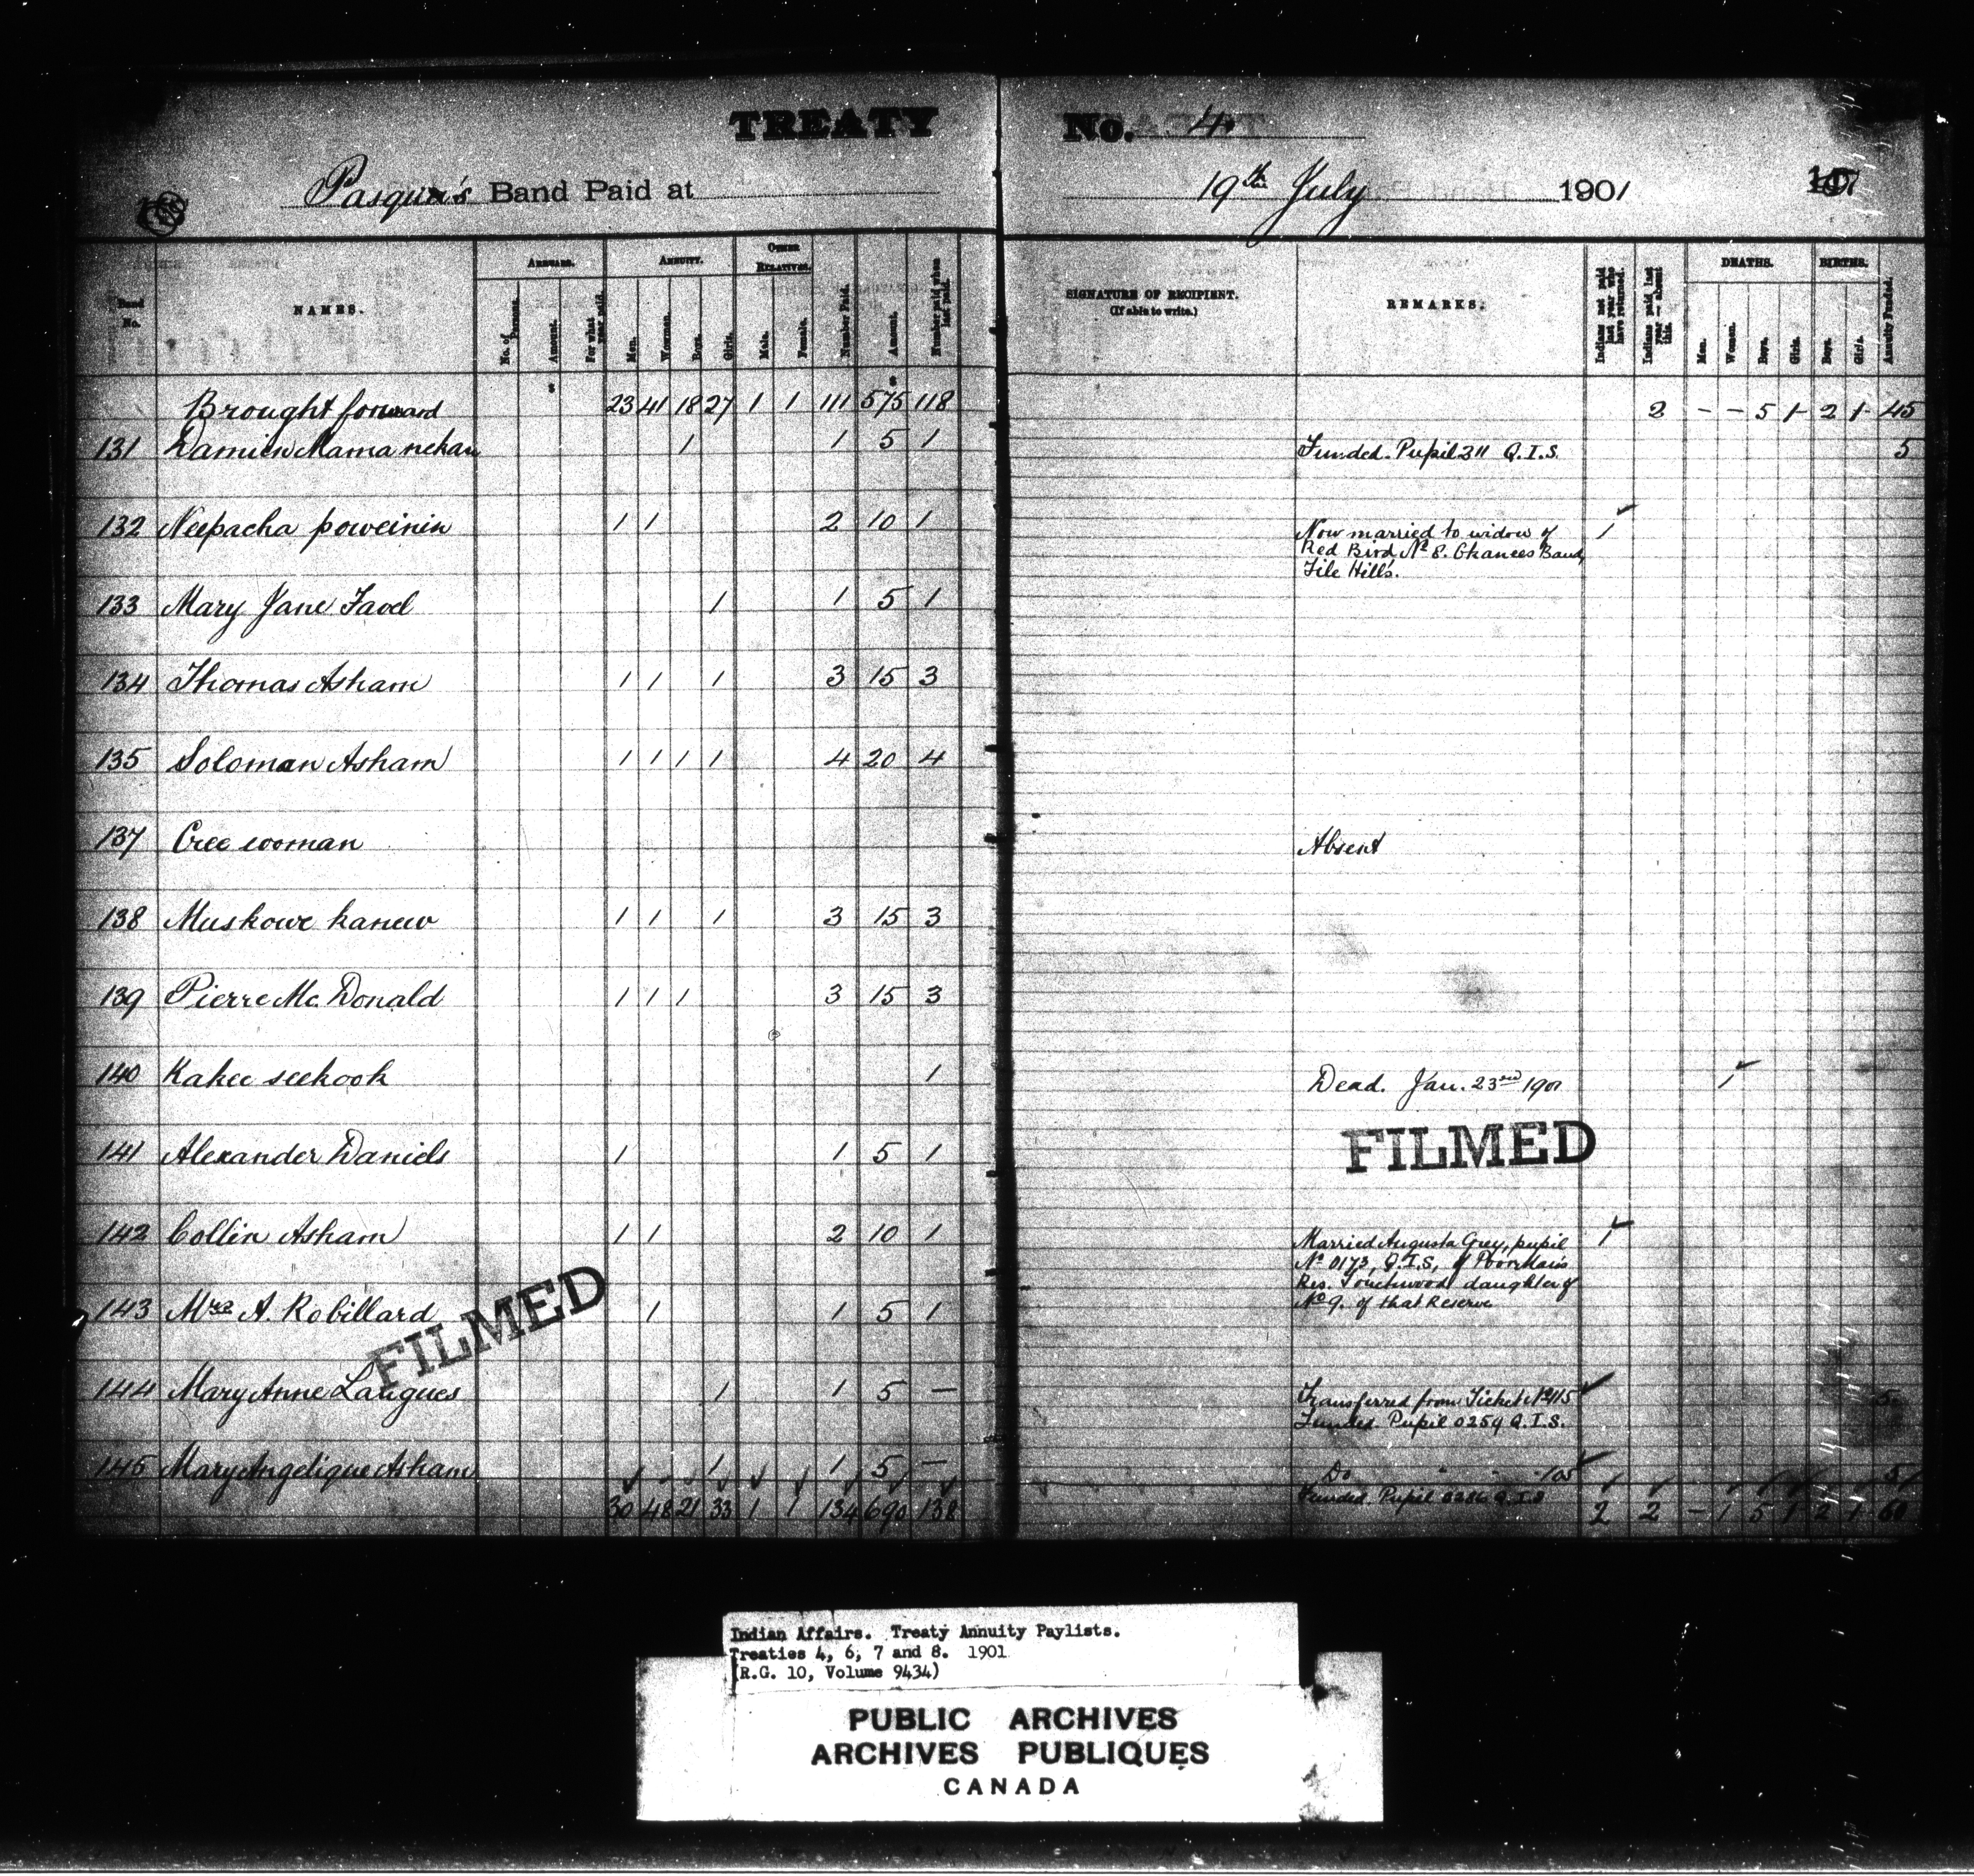 TREATY No. 4.
Pasqua's Band Paid at 19th July 1901
Band No.
NAMES.
ARREARS.
No. of Persons.
Amount.
For what year paid.
ANNUITY.
Men.
Women.
Boys.
Girls.
OTHER RELATIVES.
Male.
Female.
Number Paid.
Amount.
Number paid when last paid.
SIGNATURE OF RECIPIENT.
(If able to write.)
REMARKS.
Indians not paid last year who have returned.
Indians paid last year — absent this.
DEATHS.
Men.
Women.
Boys.
Girls.
BIRTHS.
Boys.
Girls.
Annuity Funded.
Brought forward 23 41 18 27 1 1 111 575 118 2 - - 5 1 2 1 45
131 Damien Mama nekan 1 1 5 1 Funded. Pupil 311 Q.I.S. 5
132 Neepacha poweinin 1 1 2 10 1 Now married to widow of 1
Red Bird, No 8. Okanees Band,
File Hills.
133 Mary Jane Favel 1 1 5 1
134 Thomas Asham 1 1 1 3 15 3
135 Soloman Asham 1 1 1 1 4 20 4
137 Cree woman Absent
138 Muskowe kanew 1 1 1 3 15 3
139 Pierre Mc Donald 1 1 1 3 15 3
140 Kakee seekook 1 Dead. Jan. 23rd 1901 1
FILMED
141 Alexander Daniels 1 1 5 1
142 Collin Asham 1 1 2 10 1 Married Augusta Grey, pupil 1
No 0173, Q.I.S, of Poormans
Res. Touchwood daughter of
No 9. of that Reserve
143 Mrs A. Robillard 1 1 5 1
FILMED
144 Mary Anne Langues 1 1 5 — Transferred from Ticket No 115 5
Funded. Pupil 0259 Q.I.S.
145 Mary Angelique Asham 1 1 5 — Do " " 105 5
Funded. Pupil 0286 Q.I.S
30 48 21 33 1 1 134 690 138 2 2 - 1 5 1 2 1 60
Indian Affairs. Treaty Annuity Paylists.
Treaties 4, 6, 7 and 8. 1901
(R.G. 10, Volume 9434)
PUBLIC ARCHIVES
ARCHIVES PUBLIQUES
CANADA